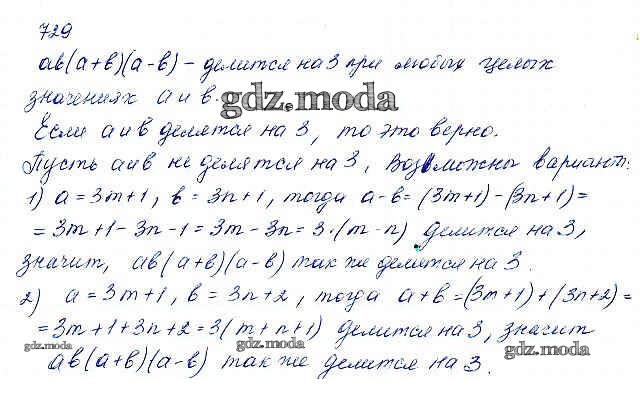 729
ab(a+b)(a-b) - делится на 3 при любых целых
значениях a и b.
gdz.moda
Если a и b делятся на 3, то это верно.
Пусть a и b не делятся на 3. Возможны вариант:
1) a = 3m+1, b = 3n+1, тогда a-b = (3m+1)-(3n+1) =
= 3m+1-3n-1 = 3m-3n = 3·(m-n) делится на 3,
значит, ab(a+b)(a-b) так же делится на 3.
2) a = 3m+1, b = 3n+2, тогда a+b = (3m+1)+(3n+2) =
= 3m+1+3n+2 = 3(m+n+1) делится на 3, значит
gdz.moda
gdz.moda
ab(a+b)(a-b) так же делится на 3.
gdz.moda